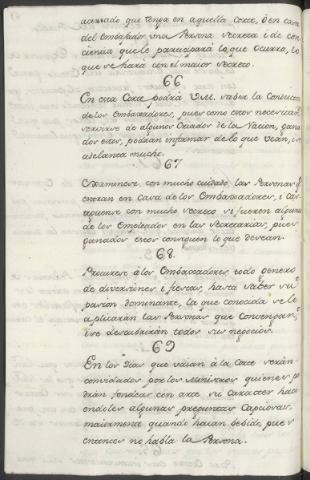 acertado que tenga en aquella Corte, ó en casa
del Embaxador una Persona secreta i de con
ciencia que le participará lo que ocurra, lo
que se hará con el maior secreto.
66
En esta Corte podrá V.M. saber la Conducta
de los Embaxadores, pues como estos necesitan
servirse de algunos Criados de la Nacion, gana
dos estos, podrán informar de lo que vean, i se
adelanta mucho.
67
Examinese con mucho cuidado las Personas q.
entran en Casa de los Embaxadores, i cas
tiguense con mucho secreto si fueren algunos
de los Empleados en las Secretarías, pues
ganados estos consiguen lo que desean.
68.
Procurese á los Embaxadores todo genero
de diversiones i fiestas, hasta saber su
pasion dominante, la que conocida se le
aplicarán las Personas que convengan, i
se descubrirán todos sus negocios.
69
En los Dias que vaian á la Corte serán
convidados por los Ministros quienes po
drán sondear con arte su caracter hac
iendoles algunas preguntas capciosas,
maiormente quando haian bebido, pues
entonces no habla la Persona.